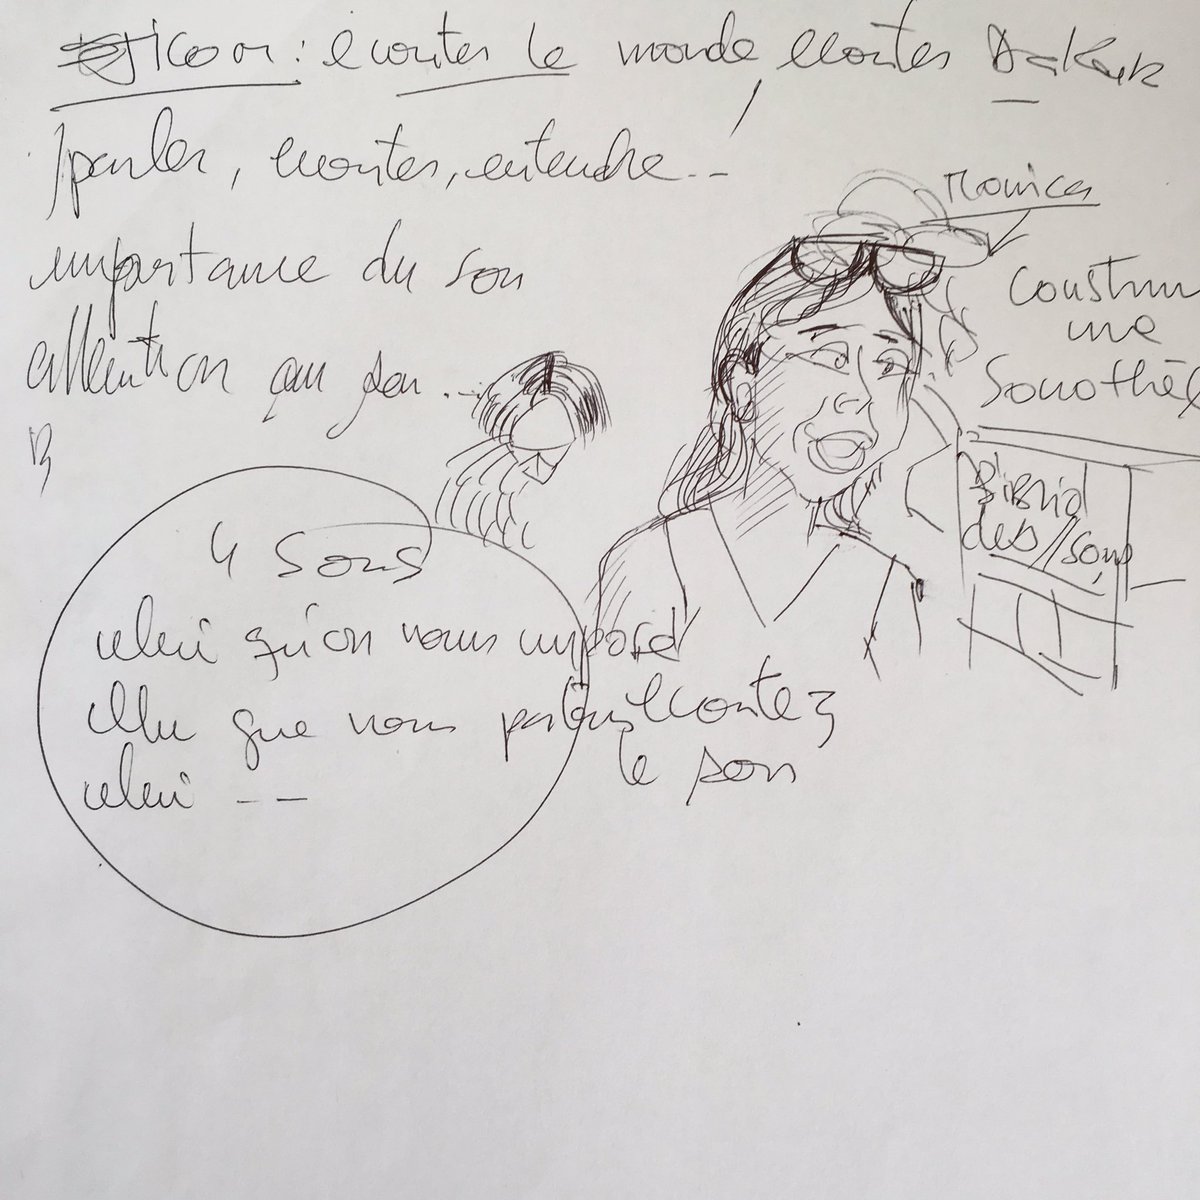 : écouter le monde écouter Dakar
parler, écouter, entendre...
importance du son
attention au son...
Monica
Construire
une
Sonothè
des sons
4 Sons
celui qu'on vous impose
celui que vous
écoutez
le son
celui --